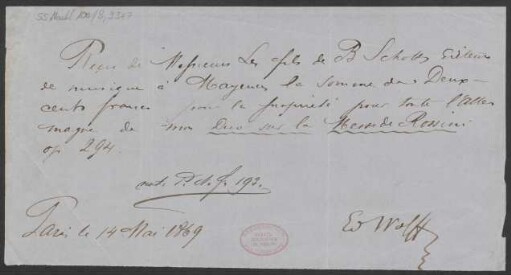 Reçu de Messieurs Les fils de B Schotts Editeurs
de musique à Mayence la somme de Deux-
cents francs pour la propriété pour toute l'Alle-
magne de mon Duo sur la Messe de Rossini
op 294.
Paris le 14 Mai 1869
Ed Wolff